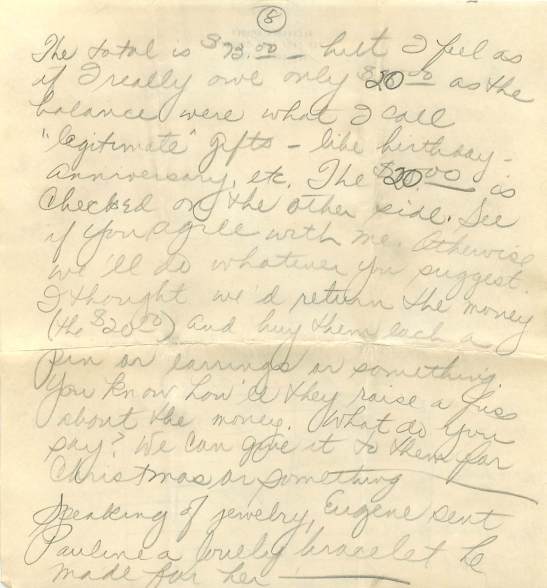 5
The total is $73.00 — but I feel as
if I really owe only $20.00 as the
balance were what I call
"legitimate" gifts - like birthday -
Anniversary, etc. The $20.00 is
checked on the other side. See
if you agree with me. Otherwise
we'll do whatever you suggest.
I thought we'd return the money
(the $20.00) and buy them each a
pin or earrings or something.
You know how'll they raise a fuss
about the money. What do you
say? We can give it to them for
Christmas or something
Speaking of jewelry, Eugene sent
Pauline a lovely bracelet he
made for her —